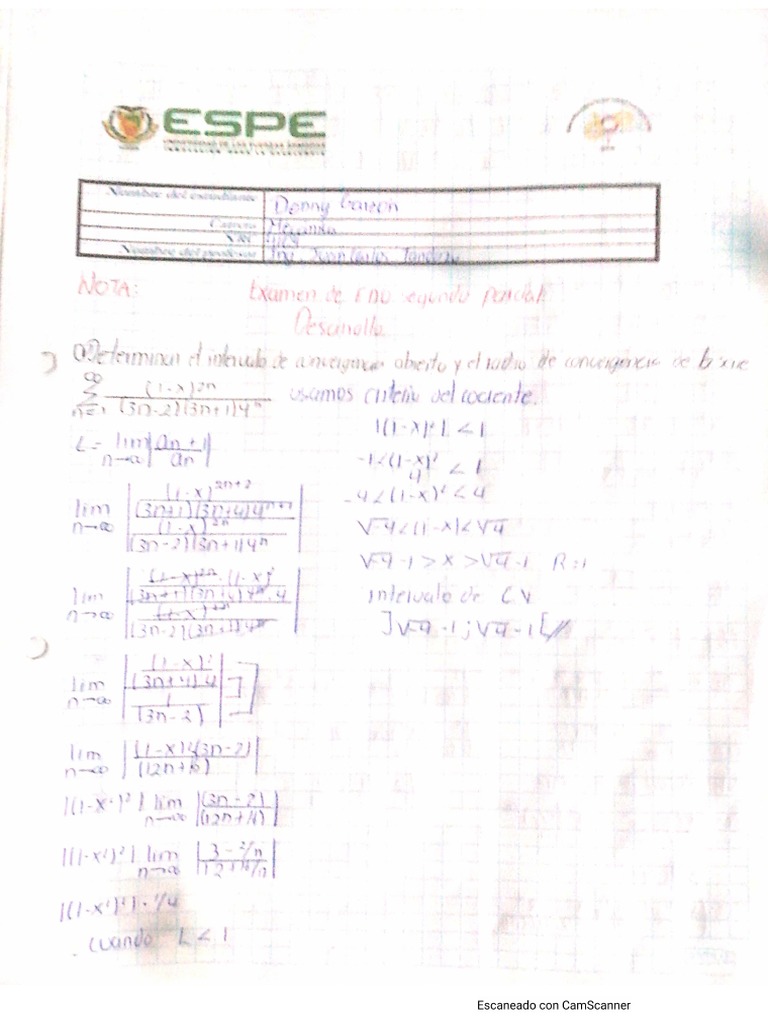 ESPE
Nombre del estudiante Denny Garzon
Carrera Mecanica
NRC
Nombre del profesor Ing. Juan Carlos
NOTA: Examen de EDO segundo parcial
Desarrollo
Determinar el intervalo de convergencia abierto y el radio de convergencia de la serie
∞ Σ n=1 (1-x)^2n / (3n-2)(3n+1)4^n usamos criterio del cociente.
L = lim n→∞ |an+1 / an|
lim n→∞ | (1-x)^2n+2 / (3n+1)(3n+4)4^n+1 / (1-x)^2n / (3n-2)(3n+1)4^n |
lim n→∞ | (1-x)^2n · (1-x)^2 / (3n+1)(3n+4)4^n · 4 / (1-x)^2n / (3n-2)(3n+1)4^n |
lim n→∞ | (1-x)^2 / (3n+4)4 / 1 / (3n-2) |
lim n→∞ | (1-x)^2(3n-2) / (12n+16) |
|(1-x)^2| lim n→∞ |(3n-2) / (12n+16)|
|(1-x)^2| lim n→∞ |3-2/n / 12+16/n|
|(1-x)^2| · 1/4
cuando L < 1
|(1-x)^2| < 1
-1 < (1-x)^2 / 4 < 1
-4 < (1-x)^2 < 4
√-4 < (1-x) < √4
√-4 -1 > x > √4 -1 R=1
intervalo de CV
]√-4 -1 ; √4 -1[ //
Escaneado con CamScanner